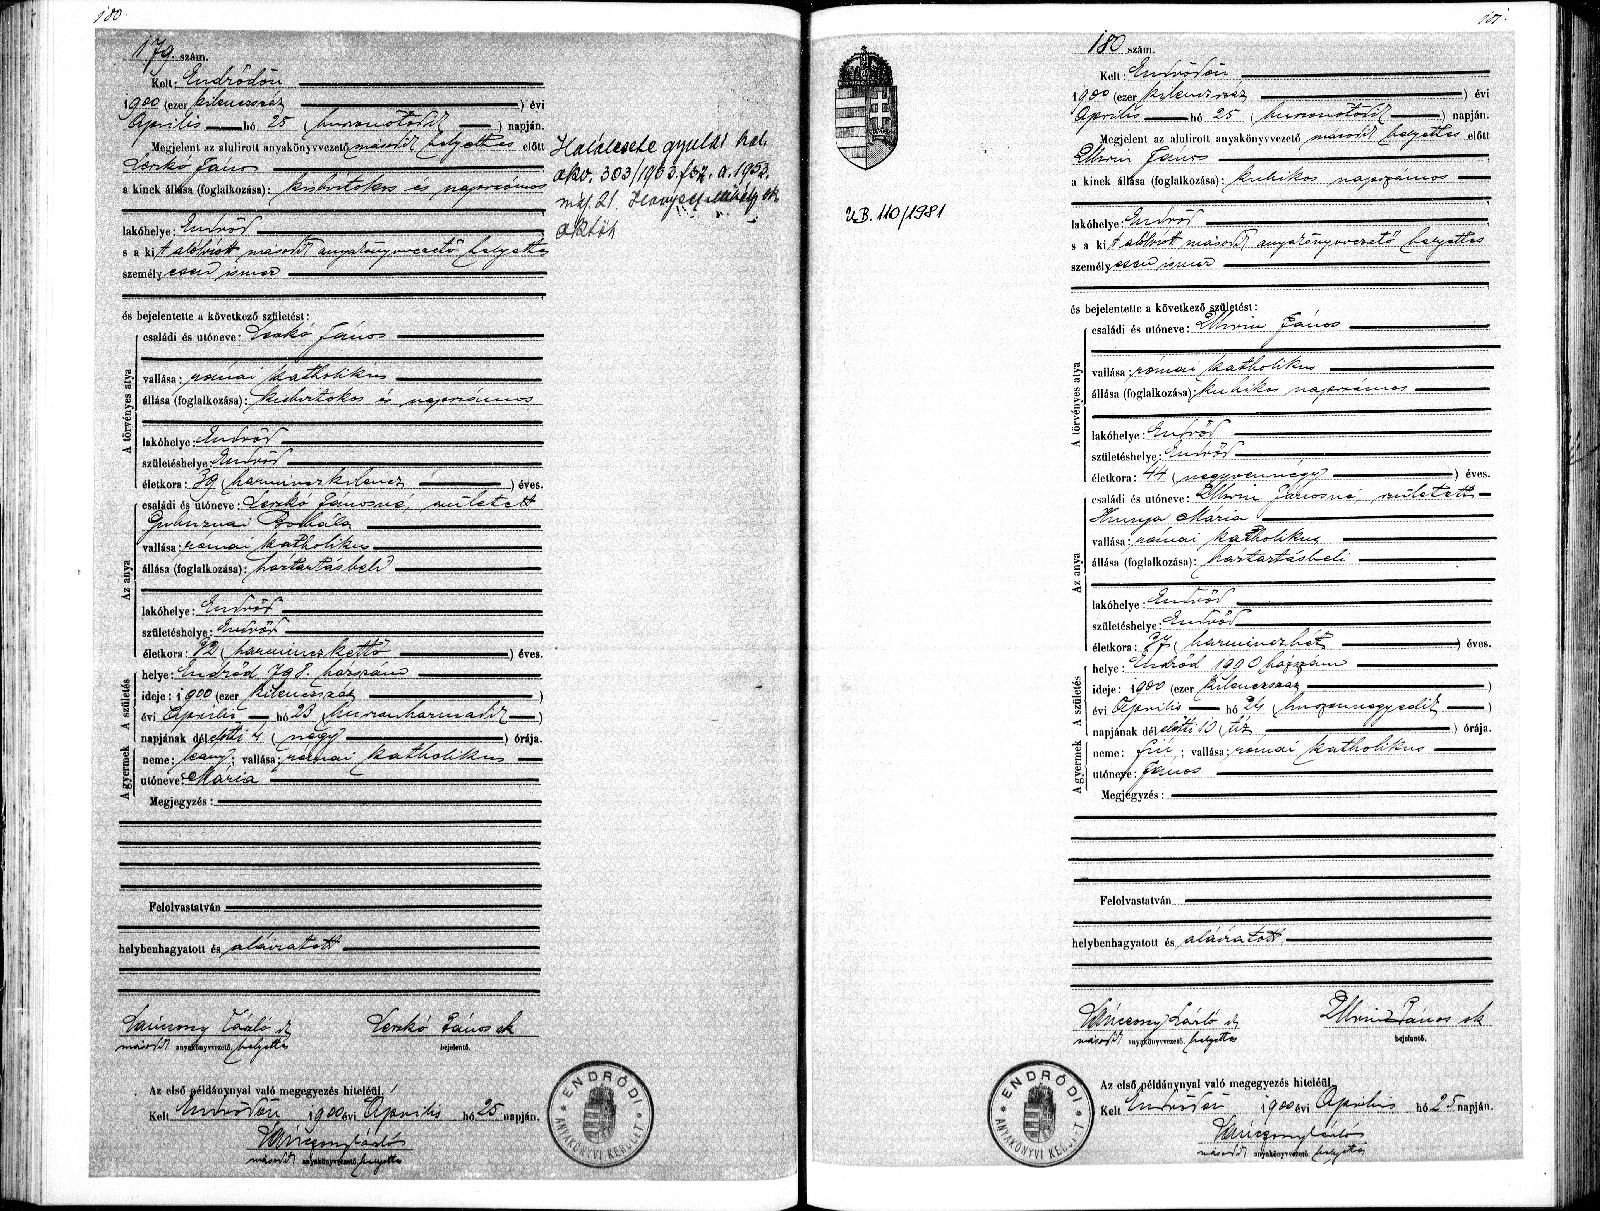 180.
179. szám.
Kelt: Endrődön
1900 (ezer kilencszáz ) évi
Április hó 25 (huszonötödik ) napján.
Megjelent az alulirott anyakönyvvezető második helyettes előtt
János
a kinek állása (foglalkozása): kisbirtokos és napszámos
lakóhelye: Endrőd
s a kit alólirott második anyakönyvvezető helyettes
személyesen ismer
és bejelentette a következő születést:
A törvényes atya
családi és utóneve: János
vallása: római katholikus
állása (foglalkozása): kisbirtokos és napszámos
lakóhelye: Endrőd
születéshelye: Endrőd
életkora: 39 (harminczkilencz ) éves.
Az anya
családi és utóneve: Jánosné, született
Borbála
vallása: római katholikus
állása (foglalkozása): háztartásbeli
lakóhelye: Endrőd
születéshelye: Endrőd
életkora: 32 (harminczkettő ) éves.
A születés
helye: Endrőd 798. házszám
ideje: 1900 (ezer kilencszáz )
évi Április hó 23 (huszonharmadik )
napjának délelőtti 4 (négy ) órája.
A gyermek
neme: leány; vallása: római katholikus
utóneve: Mária
Megjegyzés:
Felolvastatván
helybenhagyatott és aláiratott
László
János sk
második anyakönyvvezető. helyettes
bejelentő.
Az első példánynyal való megegyezés hiteléül.
Kelt Endrődön 1900 évi Április hó 25 napján.
László
második anyakönyvvezető helyettes
ENDRŐDI
ANYAKÖNYVI KERÜLET
Halálesete gyulai hal.
akv. 303/1963. fsz. a. 1963.
máj. 21.
181.
180 szám.
Kelt: Endrődön
1900 (ezer kilenczszáz ) évi
Április hó 25 (huszonötödik ) napján.
Megjelent az alulirott anyakönyvvezető második helyettes előtt
János
a kinek állása (foglalkozása): kubikos napszámos
lakóhelye: Endrőd
s a kit alólirott második anyakönyvvezető helyettes
személyesen ismer
és bejelentette a következő születést:
A törvényes atya
családi és utóneve: János
vallása: római katholikus
állása (foglalkozása): kubikos napszámos
lakóhelye: Endrőd
születéshelye: Endrőd
életkora: 44 (negyvennégy ) éves.
Az anya
családi és utóneve: Jánosné, született
Hunya Mária
vallása: római katholikus
állása (foglalkozása): háztartásbeli
lakóhelye: Endrőd
születéshelye: Endrőd
életkora: 37 (harminczhét ) éves.
A születés
helye: Endrőd 1090 házszám
ideje: 1900 (ezer kilenczszáz )
évi Április hó 24 (huszonnegyedik )
napjának délelőtti 10 (tíz ) órája.
A gyermek
neme: fiú; vallása: római katholikus
utóneve: János
Megjegyzés:
Felolvastatván
helybenhagyatott és aláiratott
László
János sk
második anyakönyvvezető. helyettes
bejelentő.
Az első példánynyal való megegyezés hiteléül.
Kelt Endrődön 1900 évi Április hó 25 napján.
László
második anyakönyvvezető. helyettes
ENDRŐDI
ANYAKÖNYVI KERÜLET
U.B. 110/1981